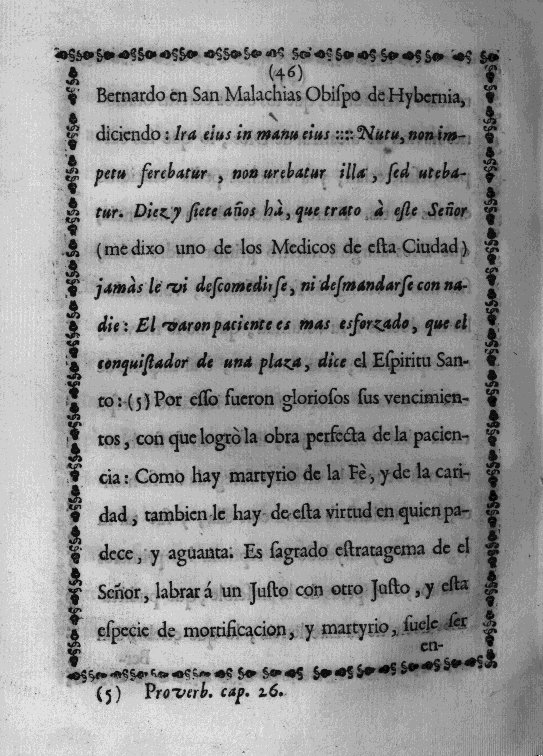 (46)
Bernardo en San Malachias Obiſpo de Hybernia,
diciendo: Ira eius in manu eius :::: Nutu, non im-
petu ferebatur, non urebatur illa, ſed uteba-
tur. Diez y ſiete años hà, que trato à eſte Señor
(me dixo uno de los Medicos de eſta Ciudad)
jamàs le vi deſcomedirſe, ni deſmandarſe con na-
die: El varon paciente es mas esforzado, que el
conquiſtador de una plaza, dice el Eſpiritu San-
to: (5) Por eſſo fueron glorioſos ſus vencimien-
tos, con que logrò la obra perfecta de la pacien-
cia: Como hay martyrio de la Fè, y de la cari-
dad, tambien le hay de eſta virtud en quien pa-
dece, y aguanta. Es ſagrado eſtratagema de el
Señor, labrar á un Juſto con otro Juſto, y eſta
eſpecie de mortificacion, y martyrio, ſuele ſer
en-
(5) Proverb. cap. 26.